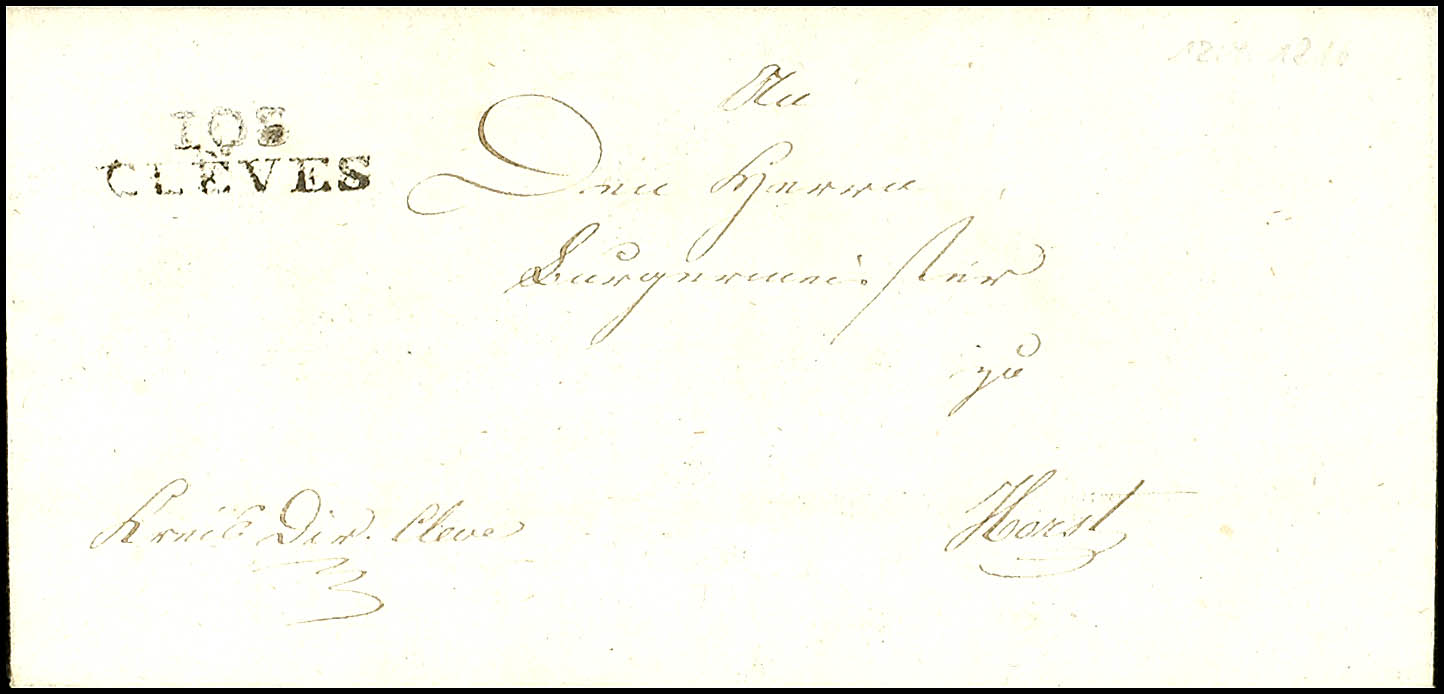 103
CLÈVES
An
Den Herrn
Burgermeister
zu
Horst
Kreis Dir. Cleve